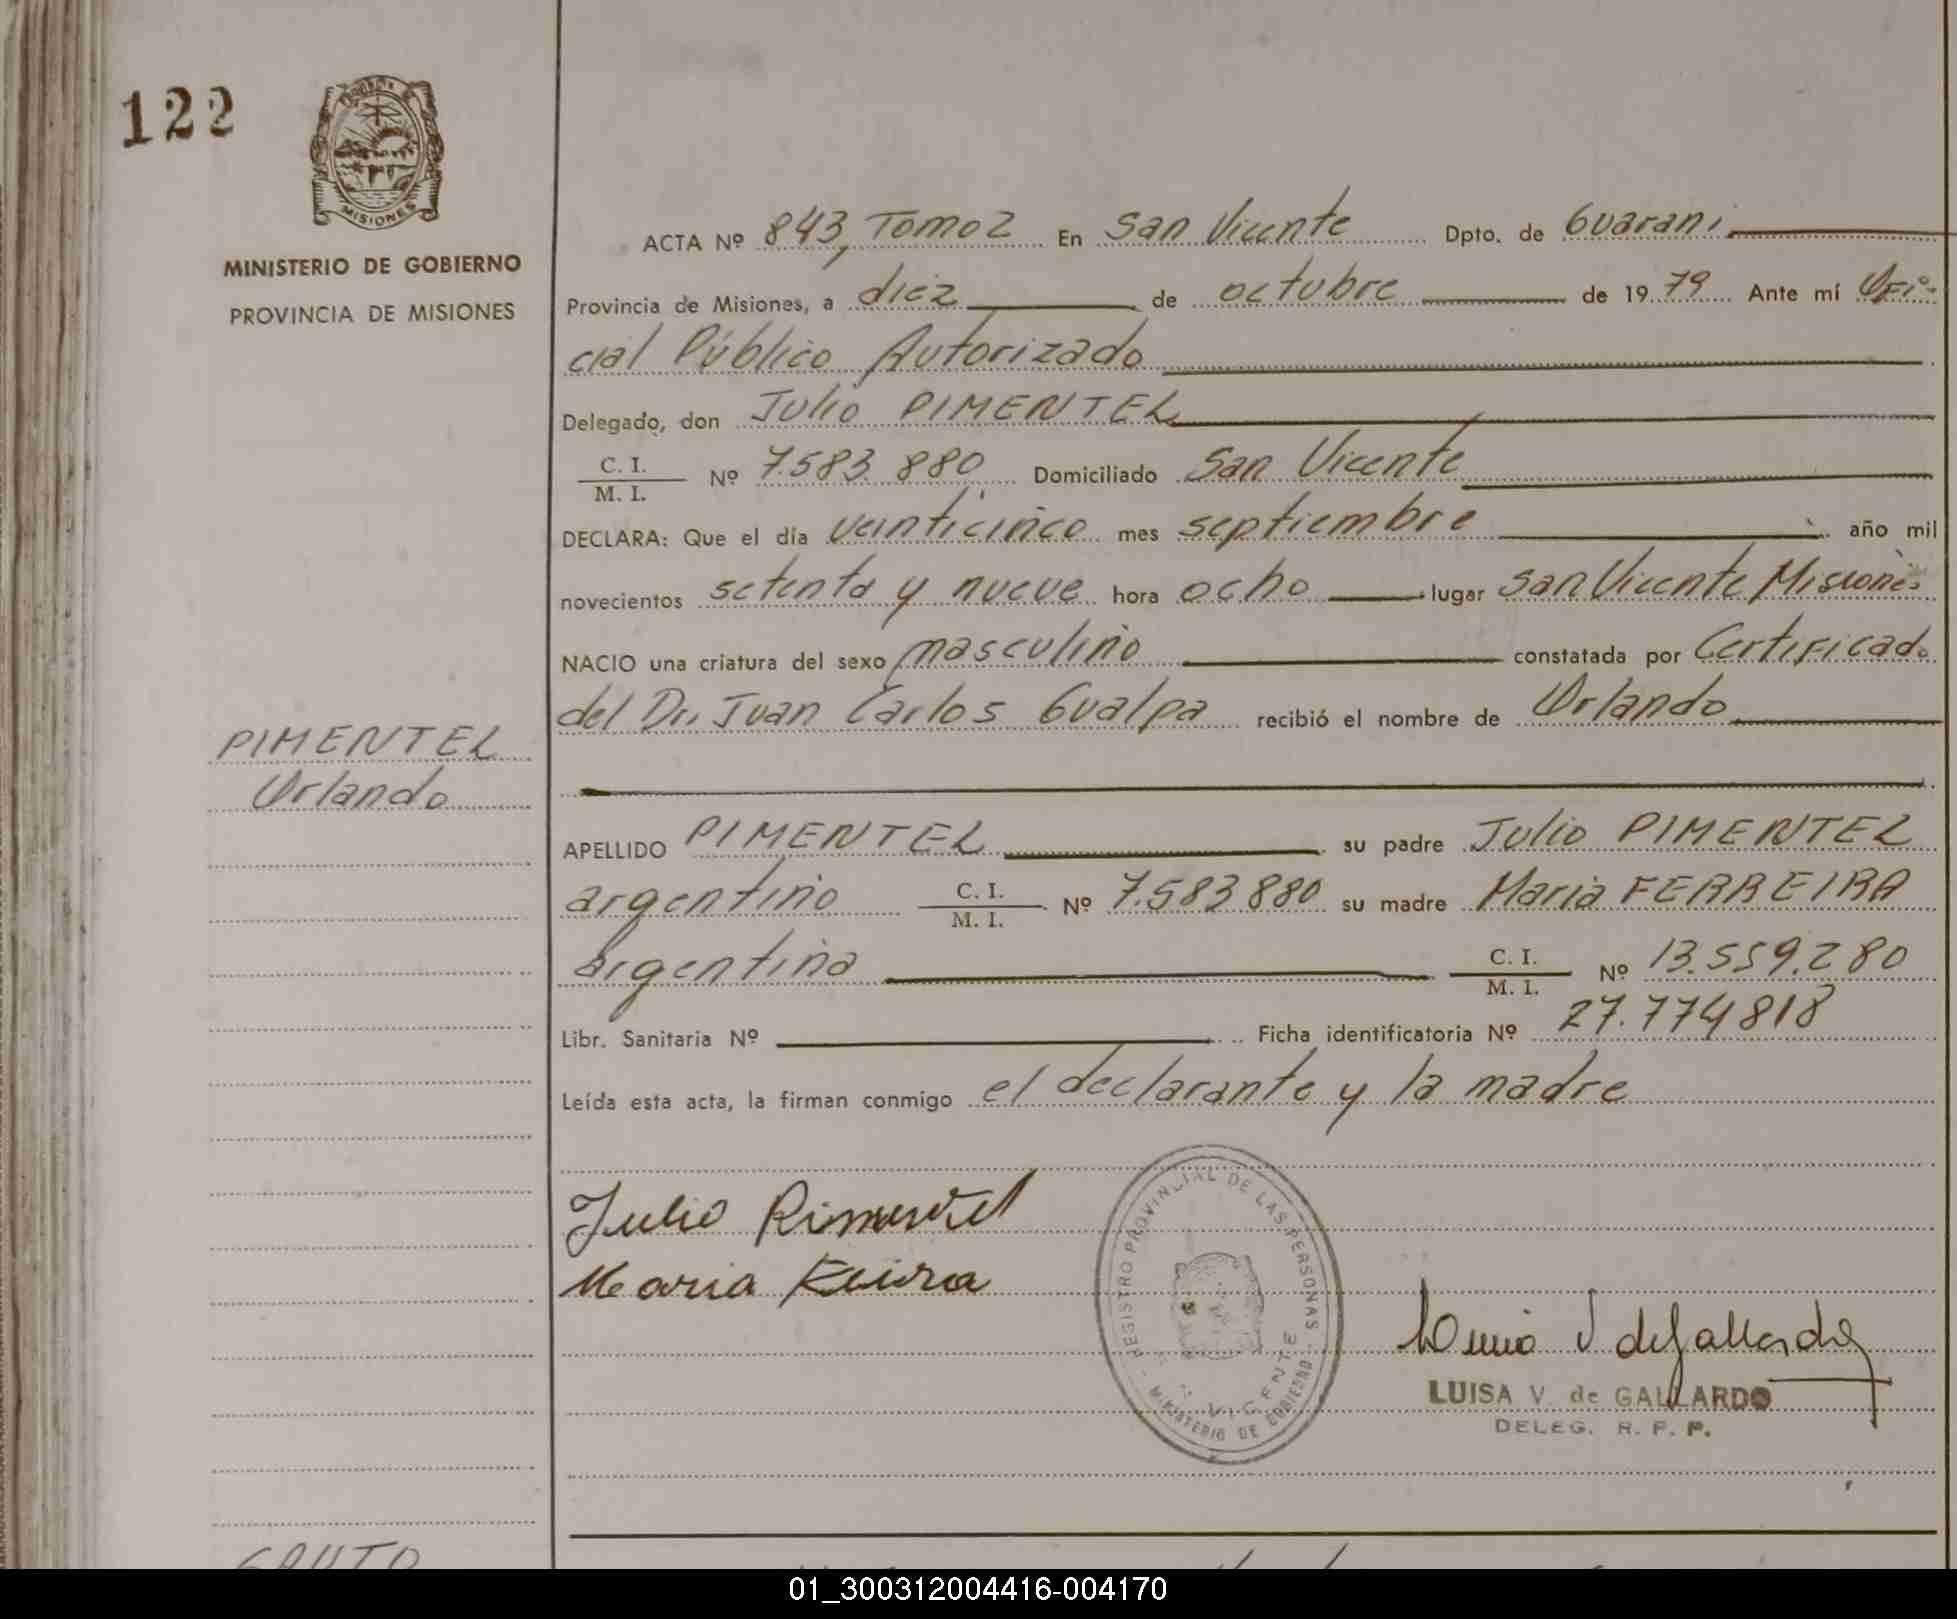 122
MISIONES
MINISTERIO DE GOBIERNO
PROVINCIA DE MISIONES
PIMENTEL
Orlando
ACTA Nº 843, Tomo 2 En San Vicente Dpto. de Guarani
Provincia de Misiones, a diez de octubre de 1979 Ante mí Ofi-
cial Público Autorizado
Delegado, don Julio PIMENTEL
C. I.
M. I. Nº 7.583.880 Domiciliado San Vicente
DECLARA: Que el día veinticinco mes septiembre año mil
novecientos setenta y nueve hora ocho lugar San Vicente Misiones
NACIO una criatura del sexo masculino constatada por Certificado
del Dr. Juan Carlos Gualpa recibió el nombre de Orlando
APELLIDO PIMENTEL su padre Julio PIMENTEL
argentino C. I. M. I. Nº 7.583.880 su madre Maria FERREIRA
argentina C. I. M. I. Nº 13.559.280
Libr. Sanitaria Nº Ficha identificatoria Nº 27.774818
Leída esta acta, la firman conmigo el declarante y la madre
Julio Pimentel
Maria
REGISTRO PROVINCIAL DE LAS PERSONAS
VICENTE
MINISTERIO DE GOBIERNO
LUISA V. de GALLARDO
DELEG. R. P. P.
01_300312004416-004170